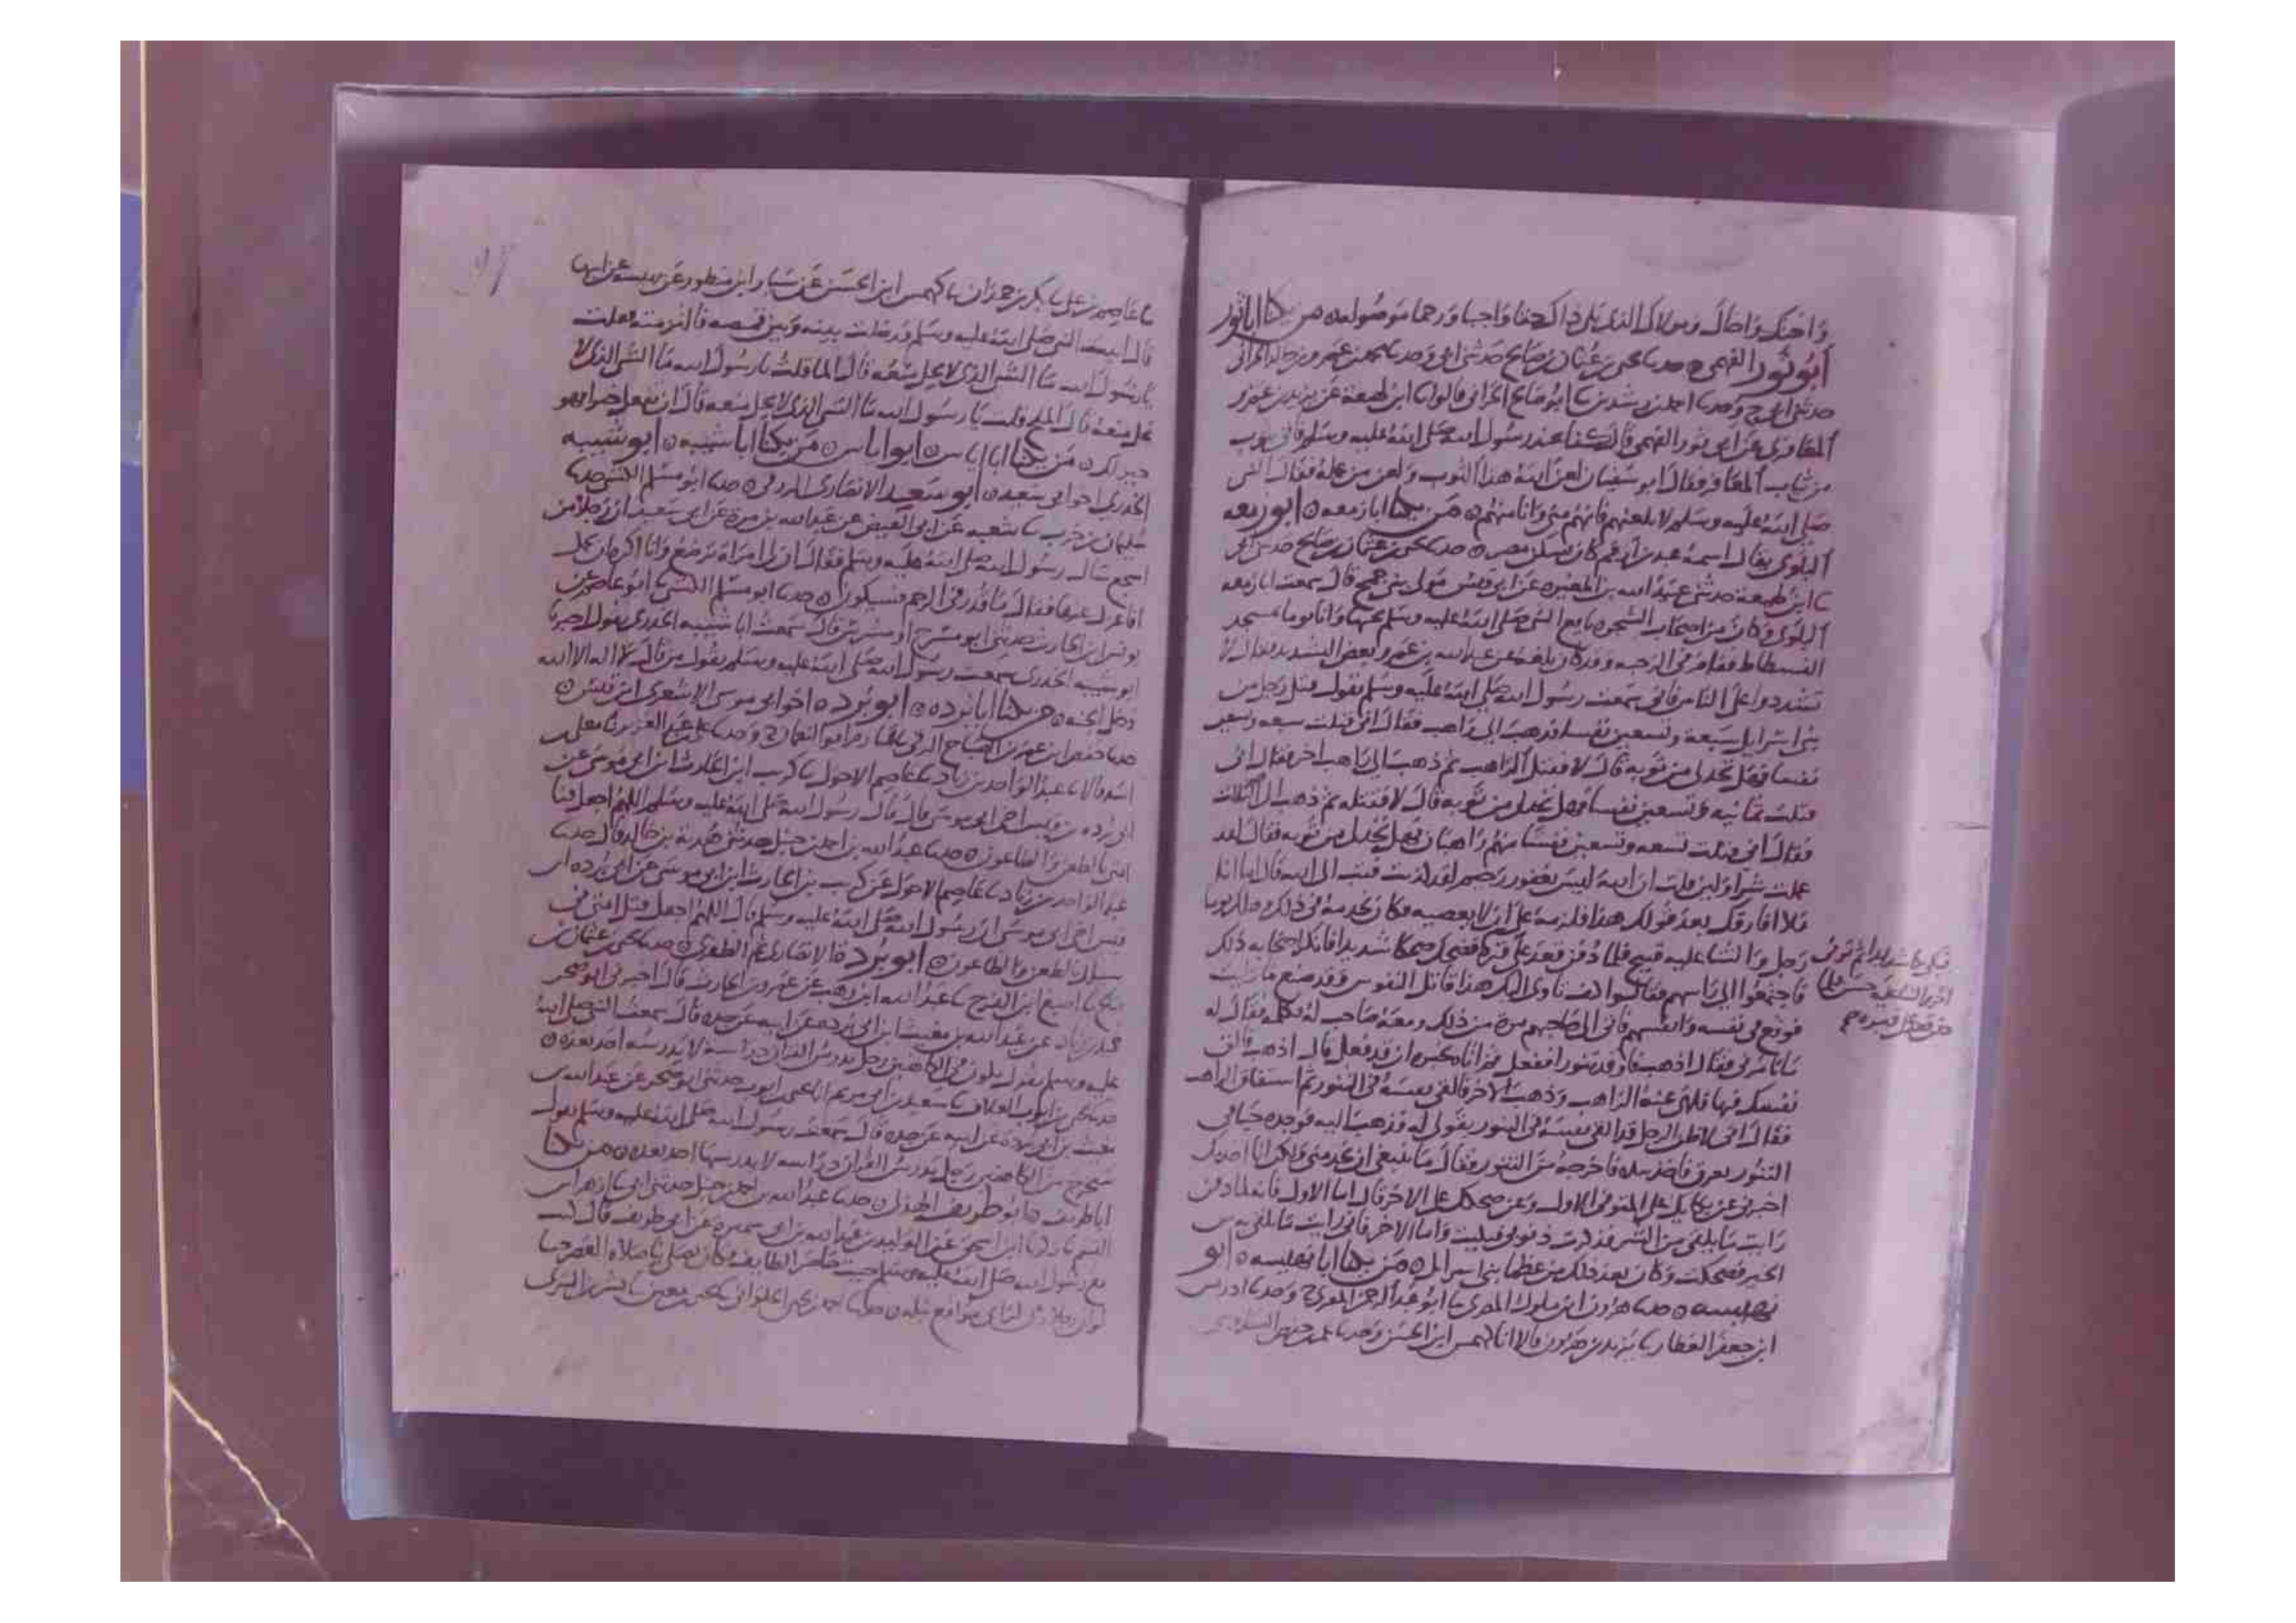 واختك واخاك ومولاك الذي يلي ذاك حقا واجبا ورحما موصوله من يكنا ابا ثور
أبو ثور الفهمي حدثنا يحيى بن عثمان بن صالح حدثني ابي وحدثنا محمد بن عمرو بن خالد الحراني
حدثني ابي ح وحدثنا احمد بن رشدين ثنا ابو صالح الحراني قالوا ثنا ابن لهيعة عن يزيد بن عمرو
المعافري عن ابي ثور الفهمي قال كنا عند رسول الله صلى الله عليه وسلم فاتي بثوب
من ثياب المعافر فقال ابو سفيان لعن الله هذا الثوب ولعن من عمله فقال النبي
صلى الله عليه وسلم لا تلعنهم فانهم مني وانا منهم من يكنا ابا زمعه ابو زمعه
البلوي يقال اسمه عبد بن ارقم كان يسكن مصر حدثنا يحيى بن عثمان بن صالح حدثني ابي
ثنا ابن لهيعة حدثني عبيد الله بن المغيره عن ابي قيس مولى بني جمح قال سمعت ابا زمعه
البلوي وكان من اصحاب الشجره بايع النبي صلى الله عليه وسلم تحتها واتا يوما مسجد
الفسطاط فقام في الرحبه وقد كان بلغه عن عبد الله بن عمرو بعض التشديد فقال لا
تشددوا على الناس فاني سمعت رسول الله صلى الله عليه وسلم يقول قتل رجل من
بني اسرايل سبعة وتسعين نفسا فذهب الى راهب فقال اني قتلت سبعه وتسعين
نفسا فهل تجد لي من توبه قال لا فقتل الراهب ثم ذهب الى راهب اخر فقال اني
قتلت ثمانيه وتسعين نفسا فهل تجد لي من توبه قال لا فقتله ثم ذهب الى الثالث
فقال اني قتلت تسعه وتسعين نفسا منهم راهبان فهل تجد لي من توبه فقال لقد
عملت شرا ولين قلت ان الله ليس بغفور رحيم لقد كذبت فتب الى الله قال اما انا
فلا افارقك بعد قولك هذا فلزمه على ان لا يعصيه فكان يخدمه في ذلك وهلك يوما
رجل والثنا عليه قبيح فلما دفن قعد على قبره فضحك ضحكا شديدا فانكر اصحابه ذلك
فاجتمعوا الى راسهم فقالوا كيف تاوي اليك هذا قاتل النفوس وقد صنع ما رايت
فوقع في نفسه وانفسهم فاتى الى صاحبهم مره من ذلك ومعه صاحب له فكلمه فقال له
ما تامرني فقال اذهب فاوقد تنورا ففعل ثم اتاه يخبره ان قد فعل قال اذهب فالق
نفسك فيها فلهى عنه الراهب وذهب الاخر فالقى نفسه في التنور ثم استفاق الراهب
فقال اني لاظن الرجل قد القى نفسه في التنور بقولي له فذهب اليه فوجده حيا في
التنور يعرق فاخذ بيده فاخرجه من التنور فقال ما ينبغي ان تخدمني ولكن انا اخدمك
اخبرني عن بكايك على المتوفى الاول وعن ضحكك على الاخر قال اما الاول فانه لما دفن
رايت ما يلقى من الشر فذكرت ذنوبي فبكيت واما الاخر فاني رايت ما يلقى به من
الخير فضحكت وكان بعد ذلك من عظما بني اسرايل من يكنا ابا بهيسه ابو
بهيسه حدثنا هرون ابن ملول المصري ثنا ابو عبد الرحمن المقري ح وحدثنا ادريس
ابن جعفر العطار ثنا يزيد بن هرون قالا انا كهمس ابن الحسن وحدثنا عمر بن حفص السدوسي
ثنا عاصم بن علي ثنا بكر بن حمران ثنا كهمس ابن الحسن عن سيار ابن منظور عن بهيسه عن ابيها
قال اتيت النبي صلى الله عليه وسلم فدخلت بينه وبين قميصه فالتزمته فقلت
يا رسول الله ما الشي الذي لا يحل منعه قال الما قلت يا رسول الله ما الشي الذي لا
يحل منعه قال الملح قلت يا رسول الله ما الشي الذي لا يحل منعه قال ان تفعل خيرا فهو
خير لك من يكنا ابا اياس ابو اياس من يكنا ابا شيبه ابو شيبه
الخدري اخو ابي سعيد ابو سعيد الانصاري الزرقي حدثنا ابو مسلم الكشي حدثنا
سليمان بن حرب ثنا شعبه عن ابي الفيض عن عبد الله بن مرة عن ابي سعيد ان رجلا من
اشجع سال رسول الله صلى الله عليه وسلم فقال ان لي امراة ترضع وانا اكره ان تحمل
افاعزل عنها فقال ما قدر في الرحم فسيكون حدثنا ابو مسلم الكشي ثنا ابو عاصم عن
يونس ابن الحارث حدثني ابو مشرح او مشرس قال سمعت ابا شيبه الخدري يقول
ابو شيبه الخدري سمعت رسول الله صلى الله عليه وسلم يقول من قال لا اله الا الله
دخل الجنه من يكنا ابا برده ابو برده اخو ابي موسى الاشعري ابن قيس
حدثنا حفص ابن عمر بن الصباح الرقي ثنا عارم ابو النعمان ح وحدثنا علي بن عبد العزيز ثنا معلى بن
اسد قالا ثنا عبد الواحد بن زياد ثنا عاصم الاحول ثنا كريب ابن الحارث ابن ابي موسى عن
ابي برده بن قيس اخي ابي موسى قال قال رسول الله صلى الله عليه وسلم اللهم اجعل فنا
امتي بالطعن والطاعون حدثنا عبد الله بن احمد بن حنبل حدثني هدبة بن خالد قال حدثنا
عبد الواحد بن زياد ثنا عاصم الاحول عن كريب بن الحارث ابن ابي موسى عن ابي برده ابن
قيس اخي ابي موسى ان رسول الله صلى الله عليه وسلم قال اللهم اجعل قتل امتي في
سبيلك بالطعن والطاعون ابو بردة الانصاري ثم الظفري حدثنا يحيى بن عثمان بن
صالح ثنا اصبغ ابن الفرج ثنا عبد الله ابن وهب عن عمرو بن الحارث قال اخبرني ابو صخر
حميد بن زياد عن عبد الله بن مغيث ابن ابي برده عن ابيه عن جده قال سمعت النبي صلى الله
عليه وسلم يقول يكون في الكاهنين رجل يدرس القران دراسة لا يدرسه احد بعده
حدثنا يحيى بن ايوب العلاف ثنا سعيد بن ابي مريم انا يحيى بن ايوب حدثني ابو صخر عن عبد الله بن
مغيث بن ابي برده عن ابيه عن جده قال سمعت رسول الله صلى الله عليه وسلم يقول
سيخرج من الكاهنين رجل يدرس القران دراسه لا يدرسها احد بعده من يكنا
ابا طريف ابو طريف الهذلي حدثنا عبد الله بن احمد بن حنبل حدثني ابي ثنا ازهر ابن
القسم ثنا زكريا ابن اسحق عن الوليد بن عبد الله بن ابي سميرة عن ابي طريف قال كنت
مع رسول الله صلى الله عليه وسلم حيث حاصر الطايف وكان يصلي بنا صلاه العصر حينا
لو ان رجلا رمى لراى مواقع نبله